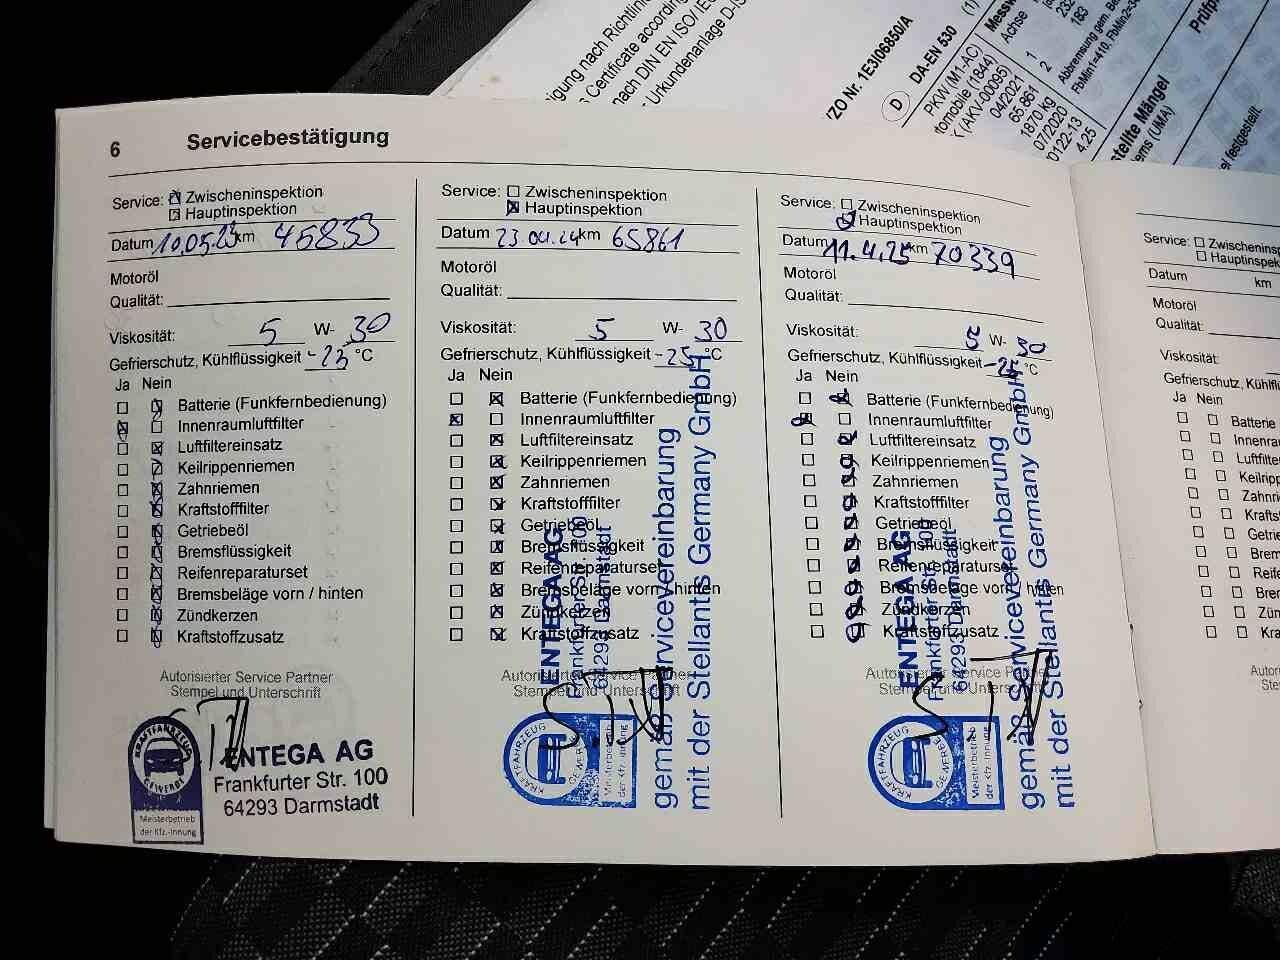 igung nach Richtlin
s Certificate according
nach DIN EN ISO/ IEC
Urkundenanlage D-IS
VZO Nr. 1E3I06850/A
D DA-EN 530 (1)
PKW(M1-AC)
tomobile (1844)
X (AKV-00095)
04/2021
65.861
1870 kg
07/2020
0122-13
4.25
Messw
Achse
1
2
232
183
Abbremsung gem. Be
FbMin1=410, FbMin2=3
Prüfp
stellte Mängel
ems (UMA)
el festgestellt.
6 Servicebestätigung
Service: Zwischeninspektion
Hauptinspektion
Datum 10.05.23 km 45833
Motoröl
Qualität:
Viskosität: 5 W- 30
Gefrierschutz, Kühlflüssigkeit -23 °C
Ja Nein
Batterie (Funkfernbedienung)
Innenraumluftfilter
Luftfiltereinsatz
Keilrippenriemen
Zahnriemen
Kraftstofffilter
Getriebeöl
Bremsflüssigkeit
Reifenreparaturset
Bremsbeläge vorn / hinten
Zündkerzen
Kraftstoffzusatz
Autorisierter Service Partner
Stempel und Unterschrift
KRAFTFAHRZEUG
GEWERBE
Meisterbetrieb
der Kfz.-Innung
ENTEGA AG
Frankfurter Str. 100
64293 Darmstadt
Service: Zwischeninspektion
Hauptinspektion
Datum 23.04.24 km 65861
Motoröl
Qualität:
Viskosität: 5 W- 30
Gefrierschutz, Kühlflüssigkeit -25 °C
Ja Nein
Batterie (Funkfernbedienung)
Innenraumluftfilter
Luftfiltereinsatz
Keilrippenriemen
Zahnriemen
Kraftstofffilter
Getriebeöl
Bremsflüssigkeit
Reifenreparaturset
Bremsbeläge vorn / hinten
Zündkerzen
Kraftstoffzusatz
Autorisierter Service Partner
Stempel und Unterschrift
KRAFTFAHRZEUG
GEWERBE
Meisterbetrieb
der Kfz.-Innung
ENTEGA AG
Frankfurter Str. 100
64293 Darmstadt
gemäß Servicevereinbarung
mit der Stellantis Germany GmbH
Service: Zwischeninspektion
Hauptinspektion
Datum 11.4.25 km 70339
Motoröl
Qualität:
Viskosität: 5 W- 30
Gefrierschutz, Kühlflüssigkeit -25 °C
Ja Nein
Batterie (Funkfernbedienung)
Innenraumluftfilter
Luftfiltereinsatz
Keilrippenriemen
Zahnriemen
Kraftstofffilter
Getriebeöl
Bremsflüssigkeit
Reifenreparaturset
Bremsbeläge vorn / hinten
Zündkerzen
Kraftstoffzusatz
Autorisierter Service Partner
Stempel und Unterschrift
KRAFTFAHRZEUG
GEWERBE
Meisterbetrieb
der Kfz.-Innung
ENTEGA AG
Frankfurter Str. 100
64293 Darmstadt
gemäß Servicevereinbarung
mit der Stellantis Germany GmbH
Service: Zwischeninsp
Hauptinspek
Datum km
Motoröl
Qualität:
Viskosität:
Gefrierschutz, Kühlflüssigk
Ja Nein
Batterie
Innenra
Luftfilte
Keilripp
Zahnri
Kraftst
Getrie
Brem
Reife
Brem
Zün
Kra
Autoris
Ste